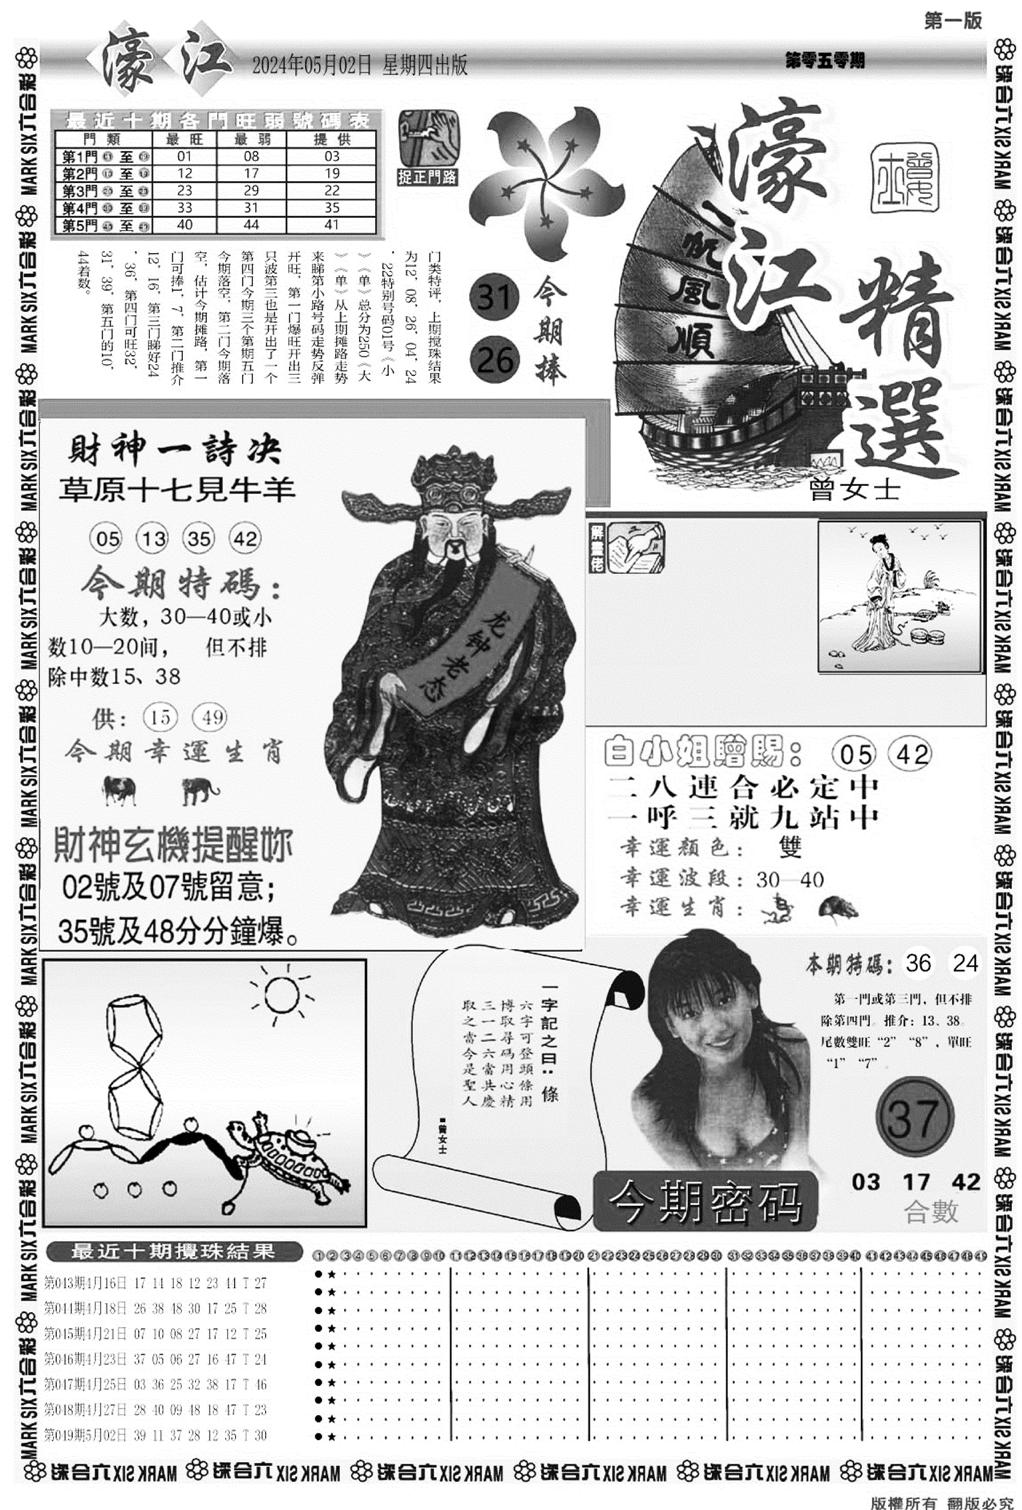 第一版
濠江
2024年05月02日 星期四出版
第零五零期
最近十期各門旺弱號碼表
門類 最旺 最弱 提供
第1門 至 01 08 03
第2門 至 12 17 19
第3門 至 23 29 22
第4門 至 33 31 35
第5門 至 40 44 41
捉正門路
门类特评，上期搅珠结果
为12，08，26，04，24
，22特别号码01号《小
》《单》总分为250《大
》《单》从上期摊路走势
来睇第小路号码走势反弹
开旺，第一门爆旺开出三
只波第三也是开出了一个
第四门今期三个第期五门
今期落空，第二门今期落
空，估计今期摊路，第一
门可捧1，7，第二门推介
12，16，第三门睇好24
，36，第四门可旺32，
31，39，第五门的10，
44着数。
31
26
今期捧
一帆風順
濠江精選
曾女士
財神一詩决
草原十七見牛羊
05 13 35 42
今期特碼：
大数，30—40或小
数10—20间， 但不排
除中数15、38
供：15 49
今期幸運生肖
財神玄機提醒妳
02號及07號留意；
35號及48分分鐘爆。
龙钟老态
解畫佬
白小姐贈賜：05 42
二八連合必定中
一呼三就九站中
幸運顏色： 雙
幸運波段：30—40
幸運生肖：
一字記之曰：條
六字可登頭條用
博取尋碼用心精
三一二六當共慶
取之當今是聖人
■曾女士
本期特碼：36 24
第一門或第三門，但不排
除第四門。推介：13、38。
尾數雙旺“2” “8”，單旺
“1” “7”。
37
03 17 42
合數
今期密码
最近十期攪珠結果
①②③④⑤⑥⑦⑧⑨⑩⑪⑫⑬⑭⑮⑯⑰⑱⑲⑳㉑㉒㉓㉔㉕㉖㉗㉘㉙㉚㉛㉜㉝㉞㉟㊱㊲㊳㊴㊵㊶㊷㊸㊹㊺㊻㊼㊽㊾
第043期4月16日 17 14 18 12 23 44 T 27
第044期4月18日 26 38 48 30 17 25 T 28
第045期4月21日 07 10 08 27 17 12 T 25
第046期4月23日 37 05 06 27 16 47 T 24
第047期4月25日 03 36 25 32 38 17 T 46
第048期4月27日 28 40 09 48 18 47 T 23
第049期5月02日 39 11 37 28 12 35 T 30
MARK SIX六合彩
版權所有 翻版必究